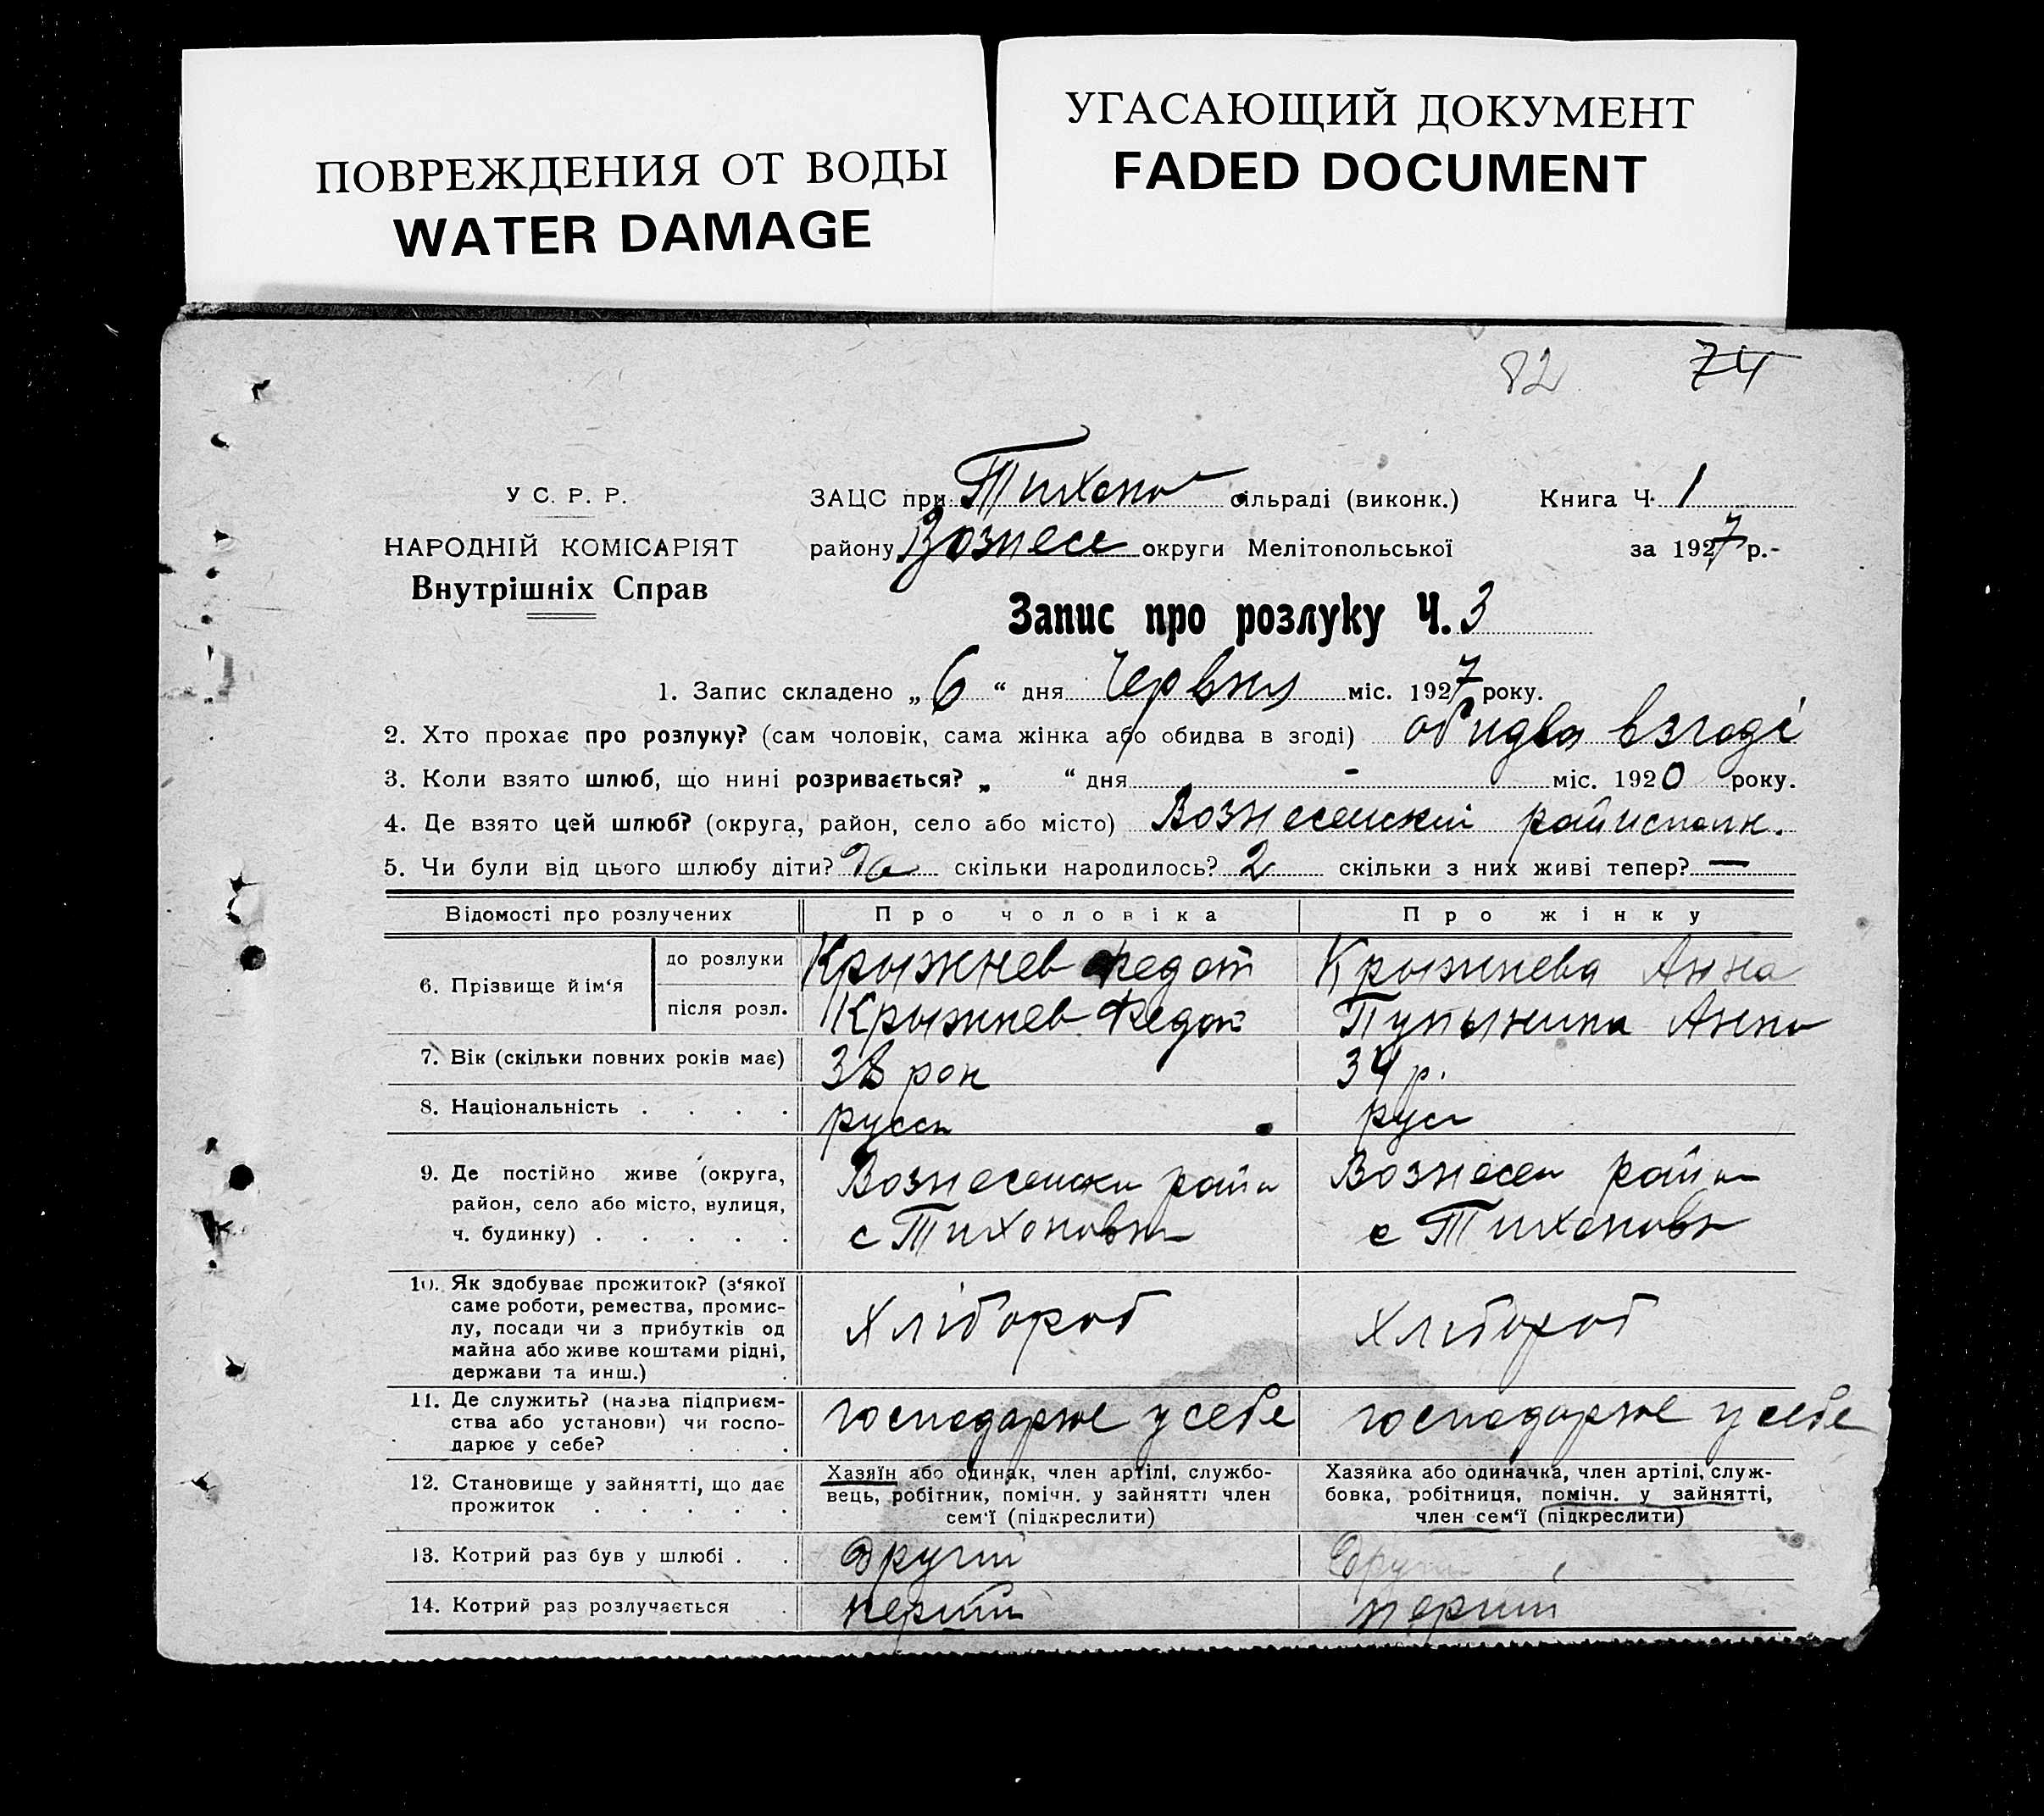 ПОВРЕЖДЕНИЯ ОТ ВОДЫ
WATER DAMAGE
УГАСАЮЩИЙ ДОКУМЕНТ
FADED DOCUMENT
82 74
У С. Р. Р.
НАРОДНІЙ КОМІСАРІЯТ
Внутрішніх Справ
ЗАЦС при Тихоно сільраді (виконк.) Книга Ч. 1
району Вознесе округи Мелітопольської за 1927 р.-
Запис про розлуку Ч. 3
1. Запис складено „ 6 “ дня Червня міс. 1927 року.
2. Хто прохає про розлуку? (сам чоловік, сама жінка або обидва в згоді) обидва взгоді
3. Коли взято шлюб, що нині розривається? „ “ дня - міс. 1920 року.
4. Де взято цей шлюб? (округа, район, село або місто) Вознесенский райисполк.
5. Чи були від цього шлюбу діти? да скільки народилось? 2 скільки з них живі тепер? —
Відомості про розлучених Про чоловіка Про жінку
6. Прізвище й ім‘я до розлуки Крыжнев Федот Крыжнева Анна
після розл. Крыжнев Федот Пупынина Анна
7. Вік (скільки повних років має) 38 рок 34 р.
8. Національність . . . . русск рус
9. Де постійно живе (округа, район, село або місто, вулиця, ч. будинку) . . . . .
Вознесенски район
с Тихоновка
Вознесен район
с Тихоновк
10. Як здобуває прожиток? (з‘якої
саме роботи, ремества, промис-
лу, посади чи з прибутків од
майна або живе коштами рідні,
держави та инш.) .
Хлібороб Хлібороб
11. Де служить? (назва підприєм-
ства або установи) чи госпо-
дарює у себе? . . .
господарює у себе господарює у себе
12. Становище у зайнятті, що дає
прожиток . . . . .
Хазяїн або одинак, член артілі, службо-
вець, робітник, помічн. у зайнятті член
сем‘ї (підкреслити)
Хазяйка або одиначка, член артілі, служ-
бовка, робітниця, помічн. у зайнятті,
член сем‘ї (підкреслити)
13. Котрий раз був у шлюбі . . другий други
14. Котрий раз розлучається . перший перший